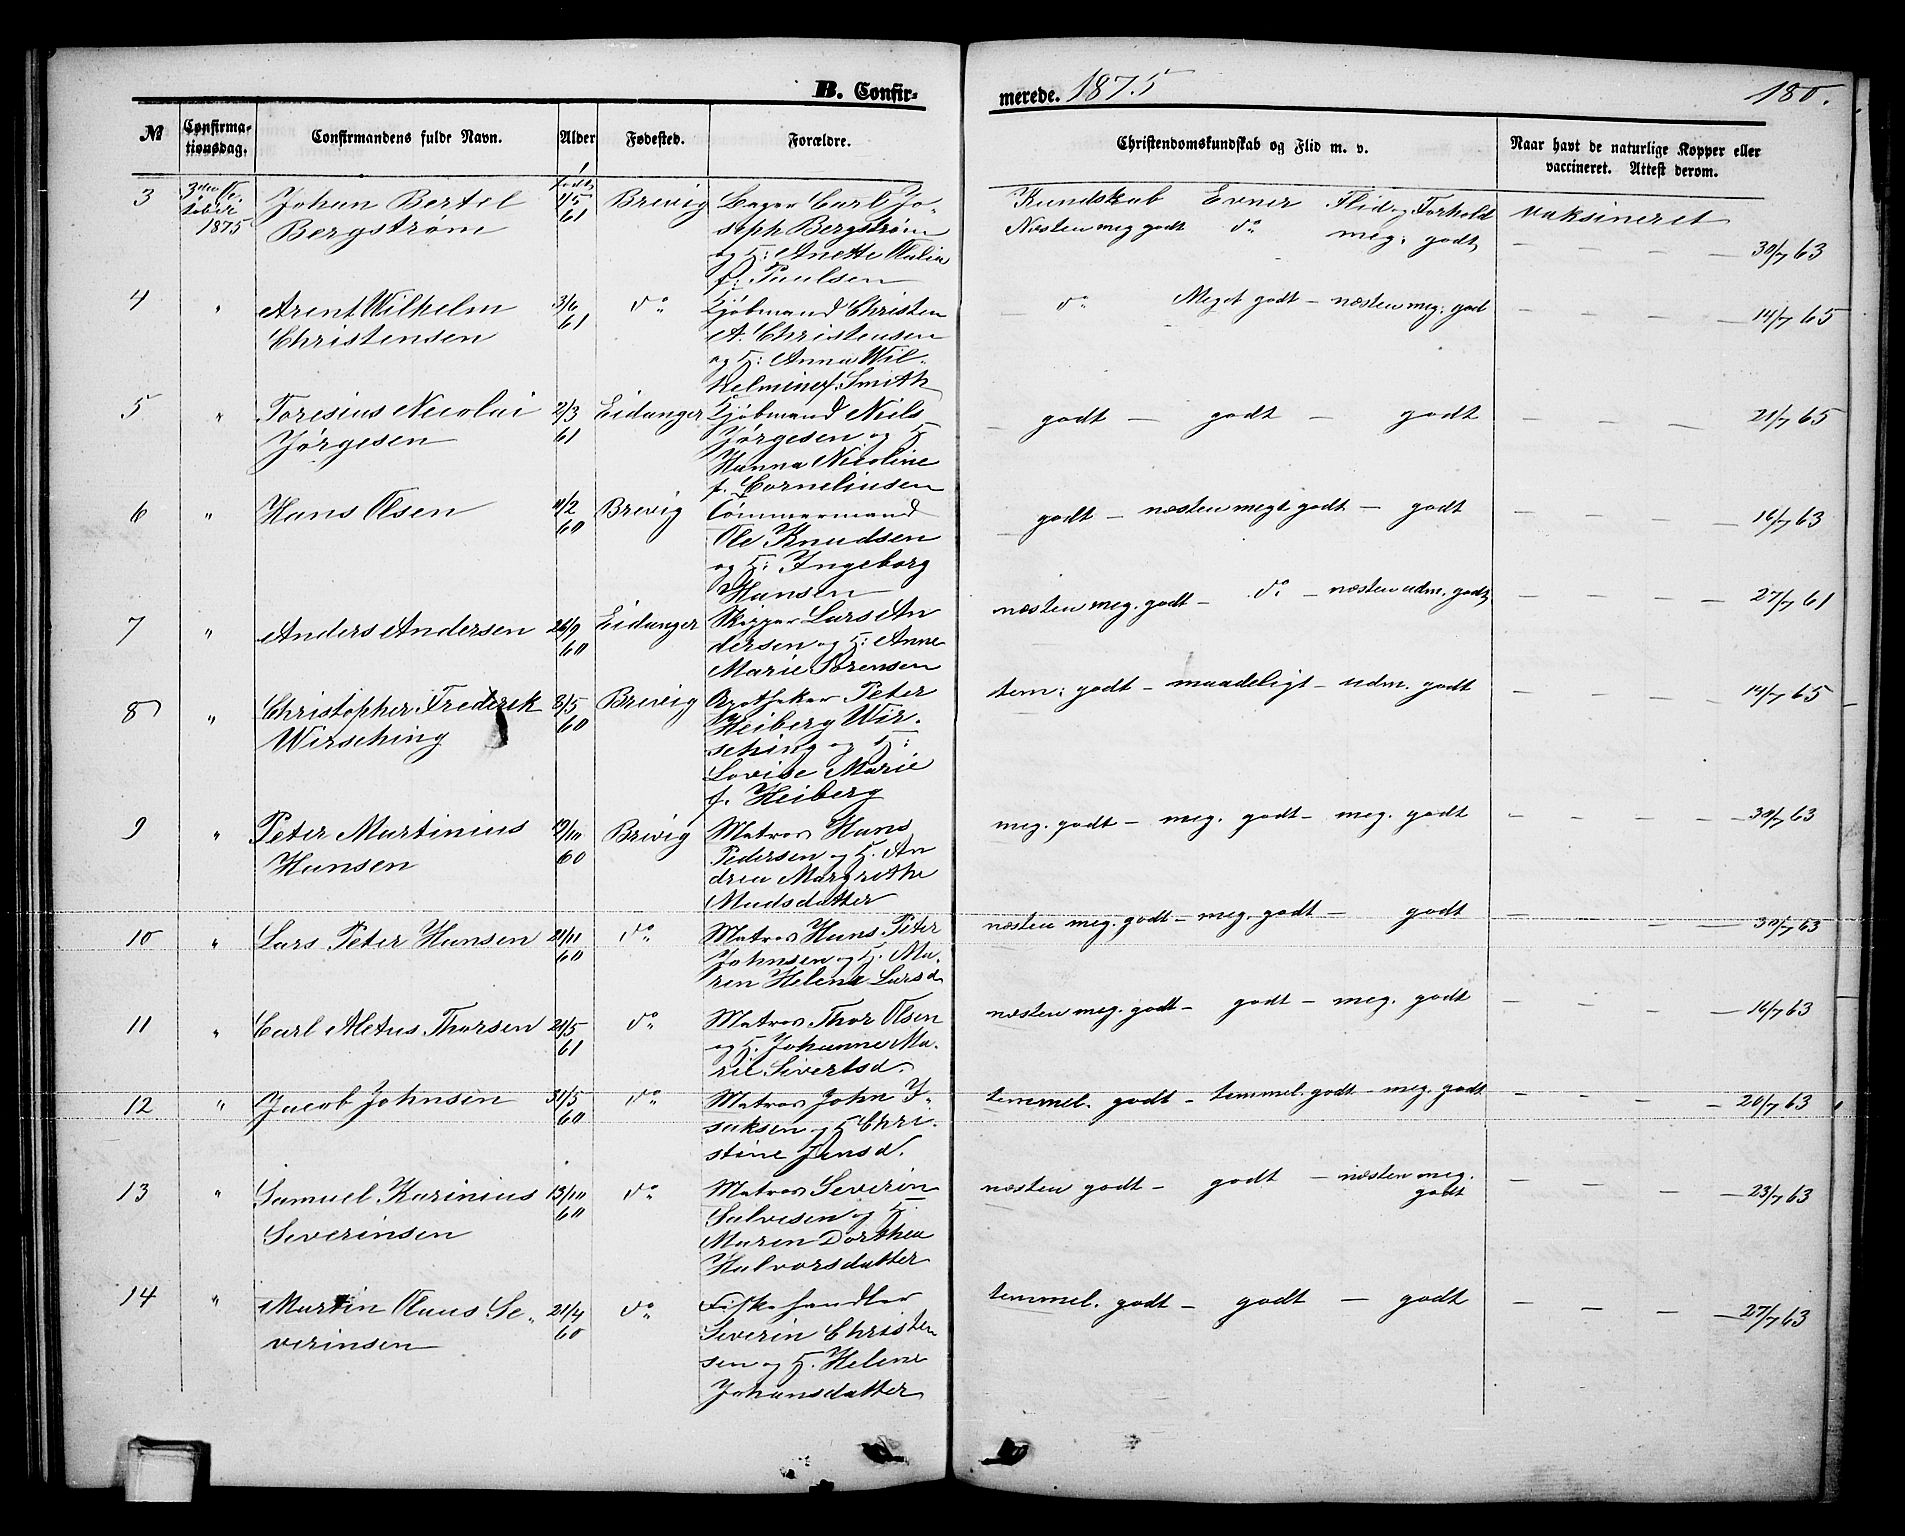 B. Confir-
merede. 1875
180.
№
Confirma-
tionsdag.
Confirmandens fulde Navn.
Alder
Fødested.
Forældre.
Christendomskundskab og Flid m. v.
Naar havt de naturlige Kopper eller
vaccineret. Attest derom.
3
3die Oc-
tober
1875
Johan Bertel
Bergstrøm
Født
1/5
61
Brevig
Bager Carl Jo-
seph Bergstrøm
og H: Anette Olalia
f. Paulsen
Kundskab Evner Flid og Forhold
Næsten meg godt do meg: godt
Vaksineret
— — — — 30/7 63
4 " Arent Wilhelm
Christensen
3/6
61
do
Kjøbmand Christen
A. Christensen
og H: Anna Wil-
helmine f. Smith
do Meget godt — næsten meg: god
— — — — 14/7 65
5 " Toresius Nicolai
Jørgesen
2/3
61
Eidanger
Kjøbmand Niels
Jørgesen og H
Hanna Nicoline
f. Corneliusen
godt — godt — godt
— — — — 21/7 65
6 " Hans Olsen
11/2
60
Brevig
Tømmermand
Ole Knudsen
og H: Ingeborg
Hansen
godt — næsten megt godt — godt
— — — — 16/7 63
7 " Anders Andersen
26/9
60
Eidanger
Skipper Lars An
dersen og H: Anne
Marie Sørensen
næsten meg. godt — do — næsten udm. godt
— — — — 27/7 61
8 " Christopher Frederek
Wirsching
8/5
60
Brevig
Apotheker Peter
Heiberg Wir-
sching og H:
Lovise Marie
f. Heiberg
tem: godt — maadeligt — udm. godt
— — — — 14/7 65
9 " Peter Martinius
Hansen
19/10
60
Brevig
Matros Hans
Pedersen og H. An
drea Margrethe
Madsdatter
meg. godt — meg. godt — meg. godt
— — — — 30/7 63
10 " Lars Peter Hansen
21/11
60
do
Matros Hans Peter
Johnsen og H. Ma-
ren Helene Larsd
næsten meg. godt — meg. godt — godt
— — — 30/7 63
11 " Carl Aletus Thorsen
21/5
61
do
Matros Thor Olsen
og H. Johanne Ma-
rie Sivertsd.
næsten meg. godt — godt — meg. godt
— — — — 16/7 63
12 " Jacob Johnsen
31/5
60
do
Matros John I-
saksen og H Chri-
stine Jensd.
temmel. godt — temmel. godt — meg. godt
— — — — 20/7 63
13 " Samuel Karinius
Severinsen
13/10
60
do
Matros Severin
Salvesen og H.
Maren Dorthea
Halvorsdatter
næsten godt — godt — næsten meg.
godt
— — — — 23/7 63
14 " Martin Olaus Se-
verinsen
21/4
60
do
Fiskehandler
Severin Christen
sen og H. Helene
Johansdatter
temmel. godt — godt — godt
— — — — 27/7 63